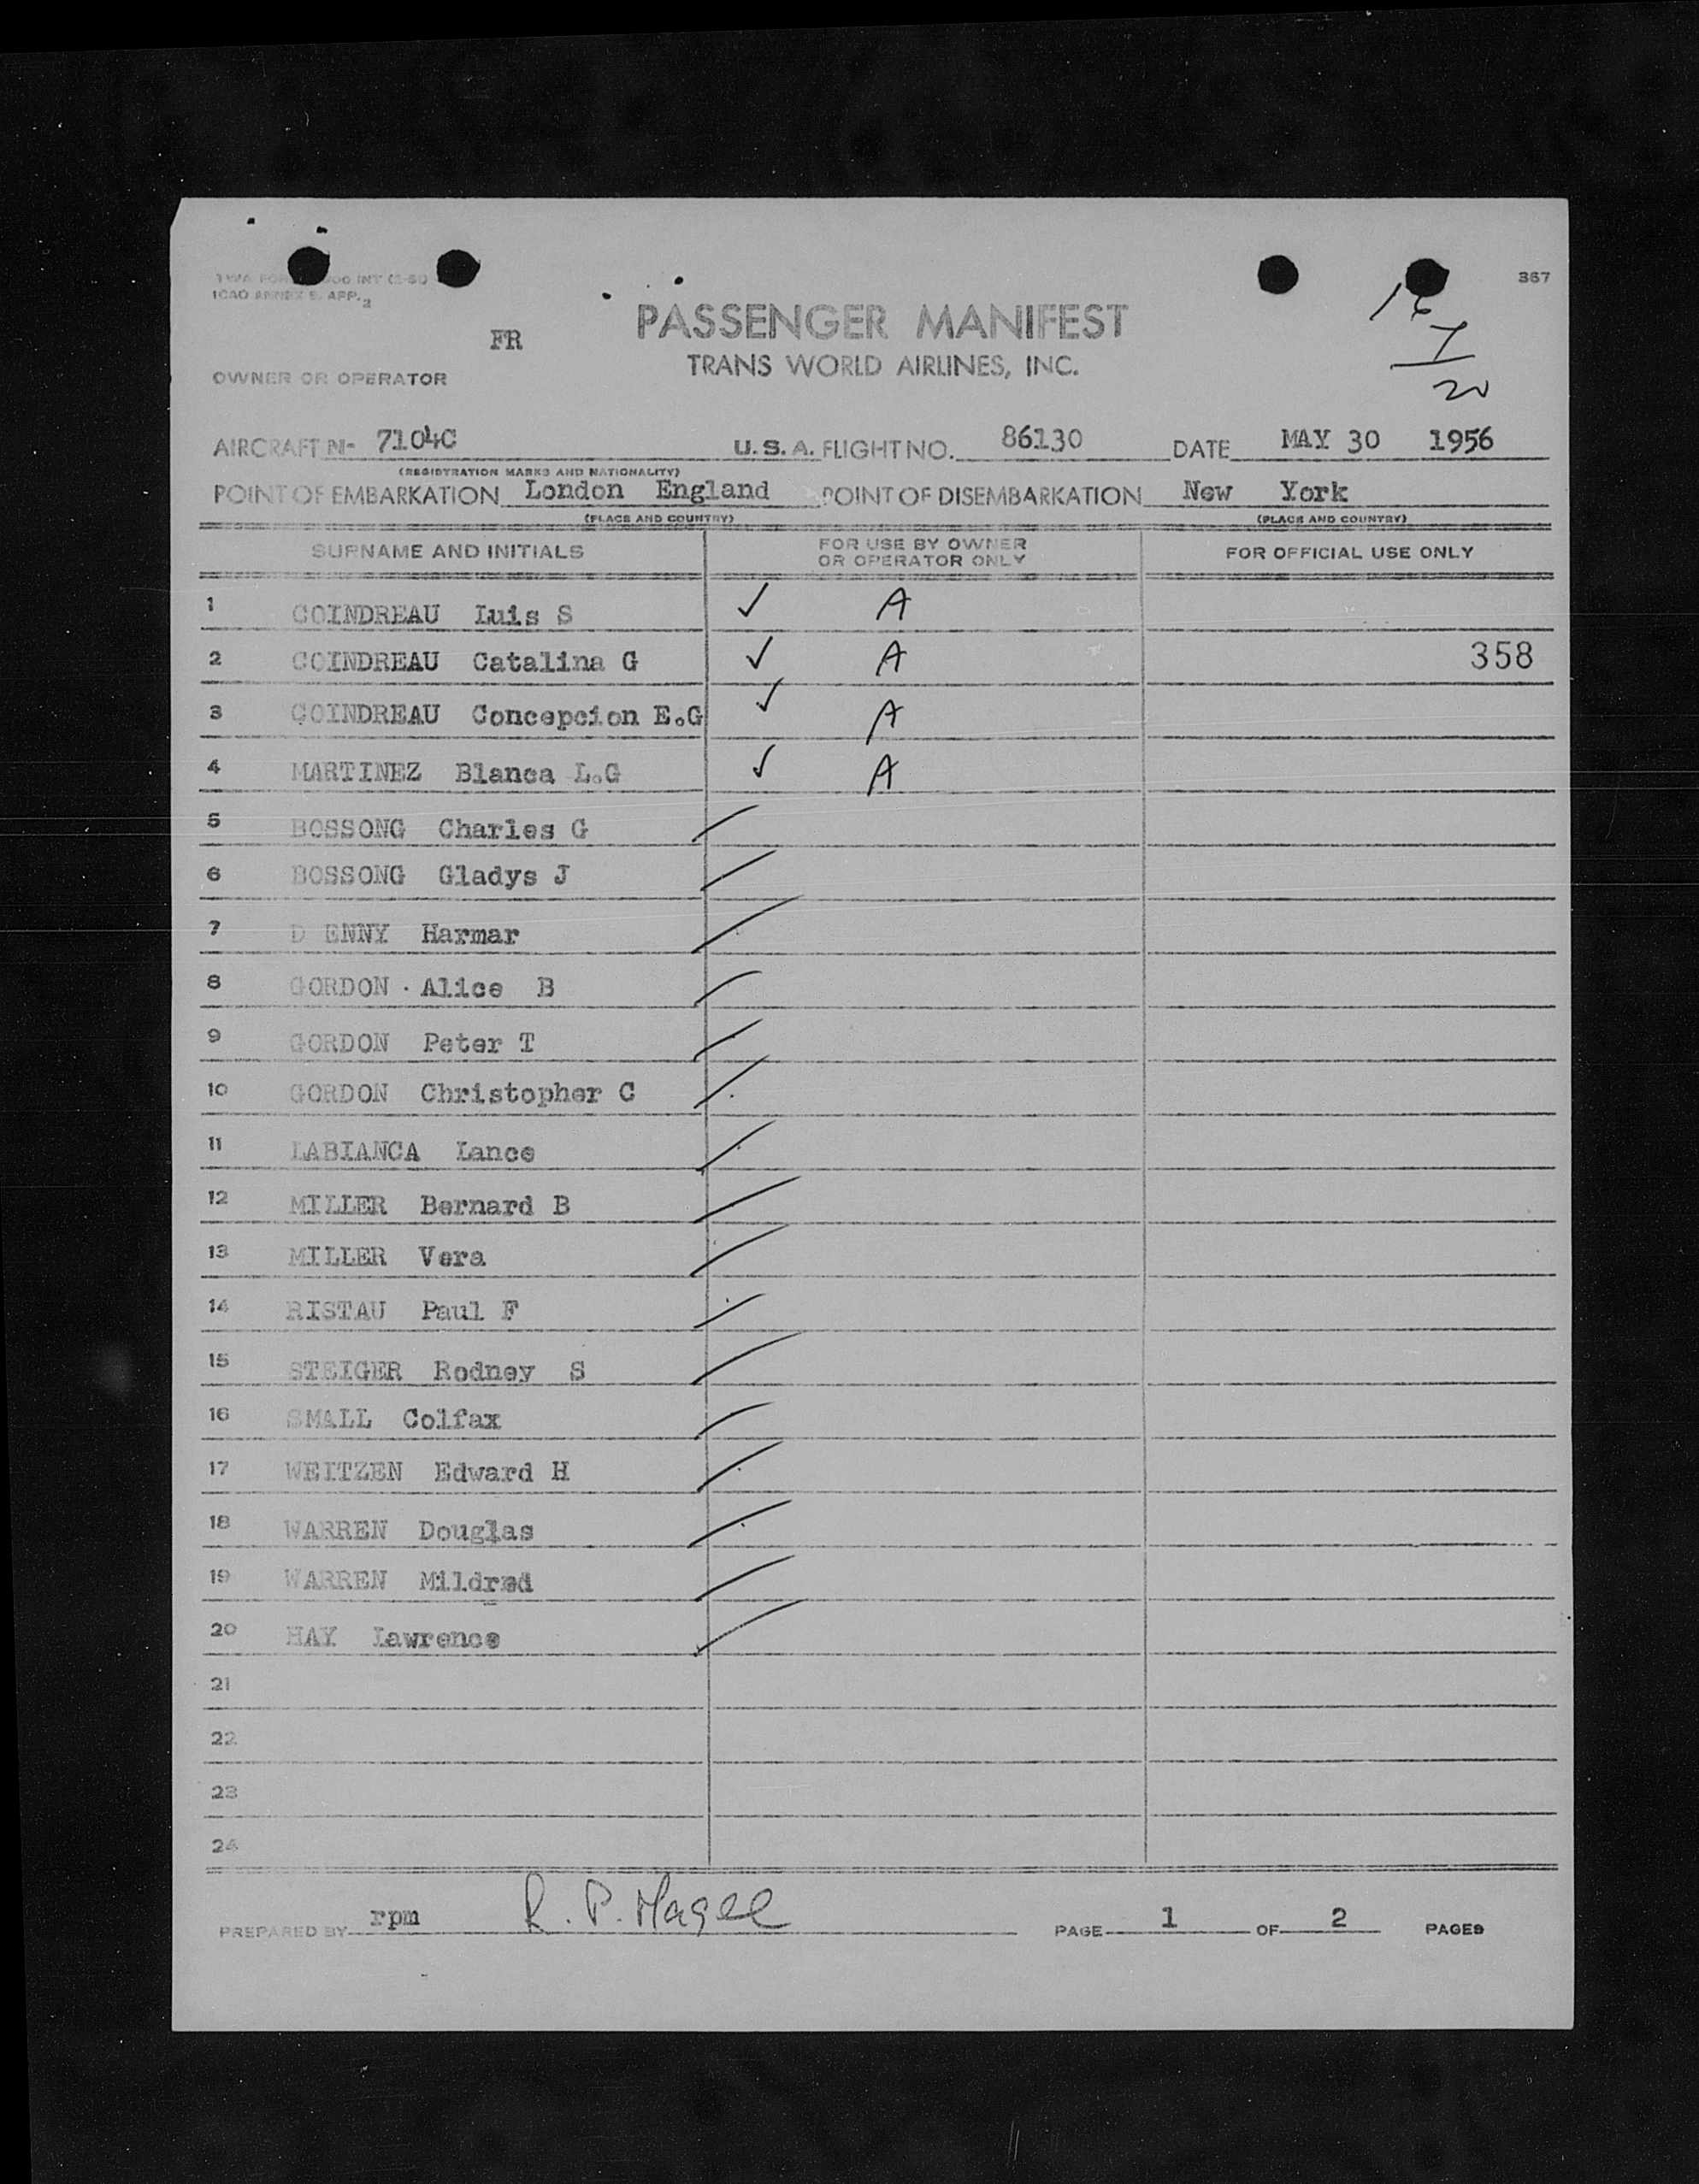 367
ICAO ANNEX 9. APP. 2
FR
PASSENGER MANIFEST
TRANS WORLD AIRLINES, INC.
OWNER OR OPERATOR
16
20
AIRCRAFT N- 7104C U.S.A. FLIGHT NO. 86130 DATE MAY 30 1956
(REGISTRATION MARKS AND NATIONALITY)
POINT OF EMBARKATION London England POINT OF DISEMBARKATION New York
(PLACE AND COUNTRY) (PLACE AND COUNTRY)
SURNAME AND INITIALS FOR USE BY OWNER OR OPERATOR ONLY FOR OFFICIAL USE ONLY
1 COINDREAU Luis S ✓ A
2 COINDREAU Catalina G ✓ A 358
3 COINDREAU Concepcion E.G ✓ A
4 MARTINEZ Blanca L.G ✓ A
5 BOSSONG Charles G
6 BOSSONG Gladys J
7 D ENNY Harmar
8 GORDON Alice B
9 GORDON Peter T
10 GORDON Christopher C
11 LABIANCA Lance
12 MILLER Bernard B
13 MILLER Vera
14 RISTAU Paul F
15 STEIGER Rodney S
16 SMALL Colfax
17 WEITZEN Edward H
18 WARREN Douglas
19 WARREN Mildred
20 HAY Lawrence
21
22
23
24
PREPARED BY rpm R. P. Magee PAGE 1 OF 2 PAGES